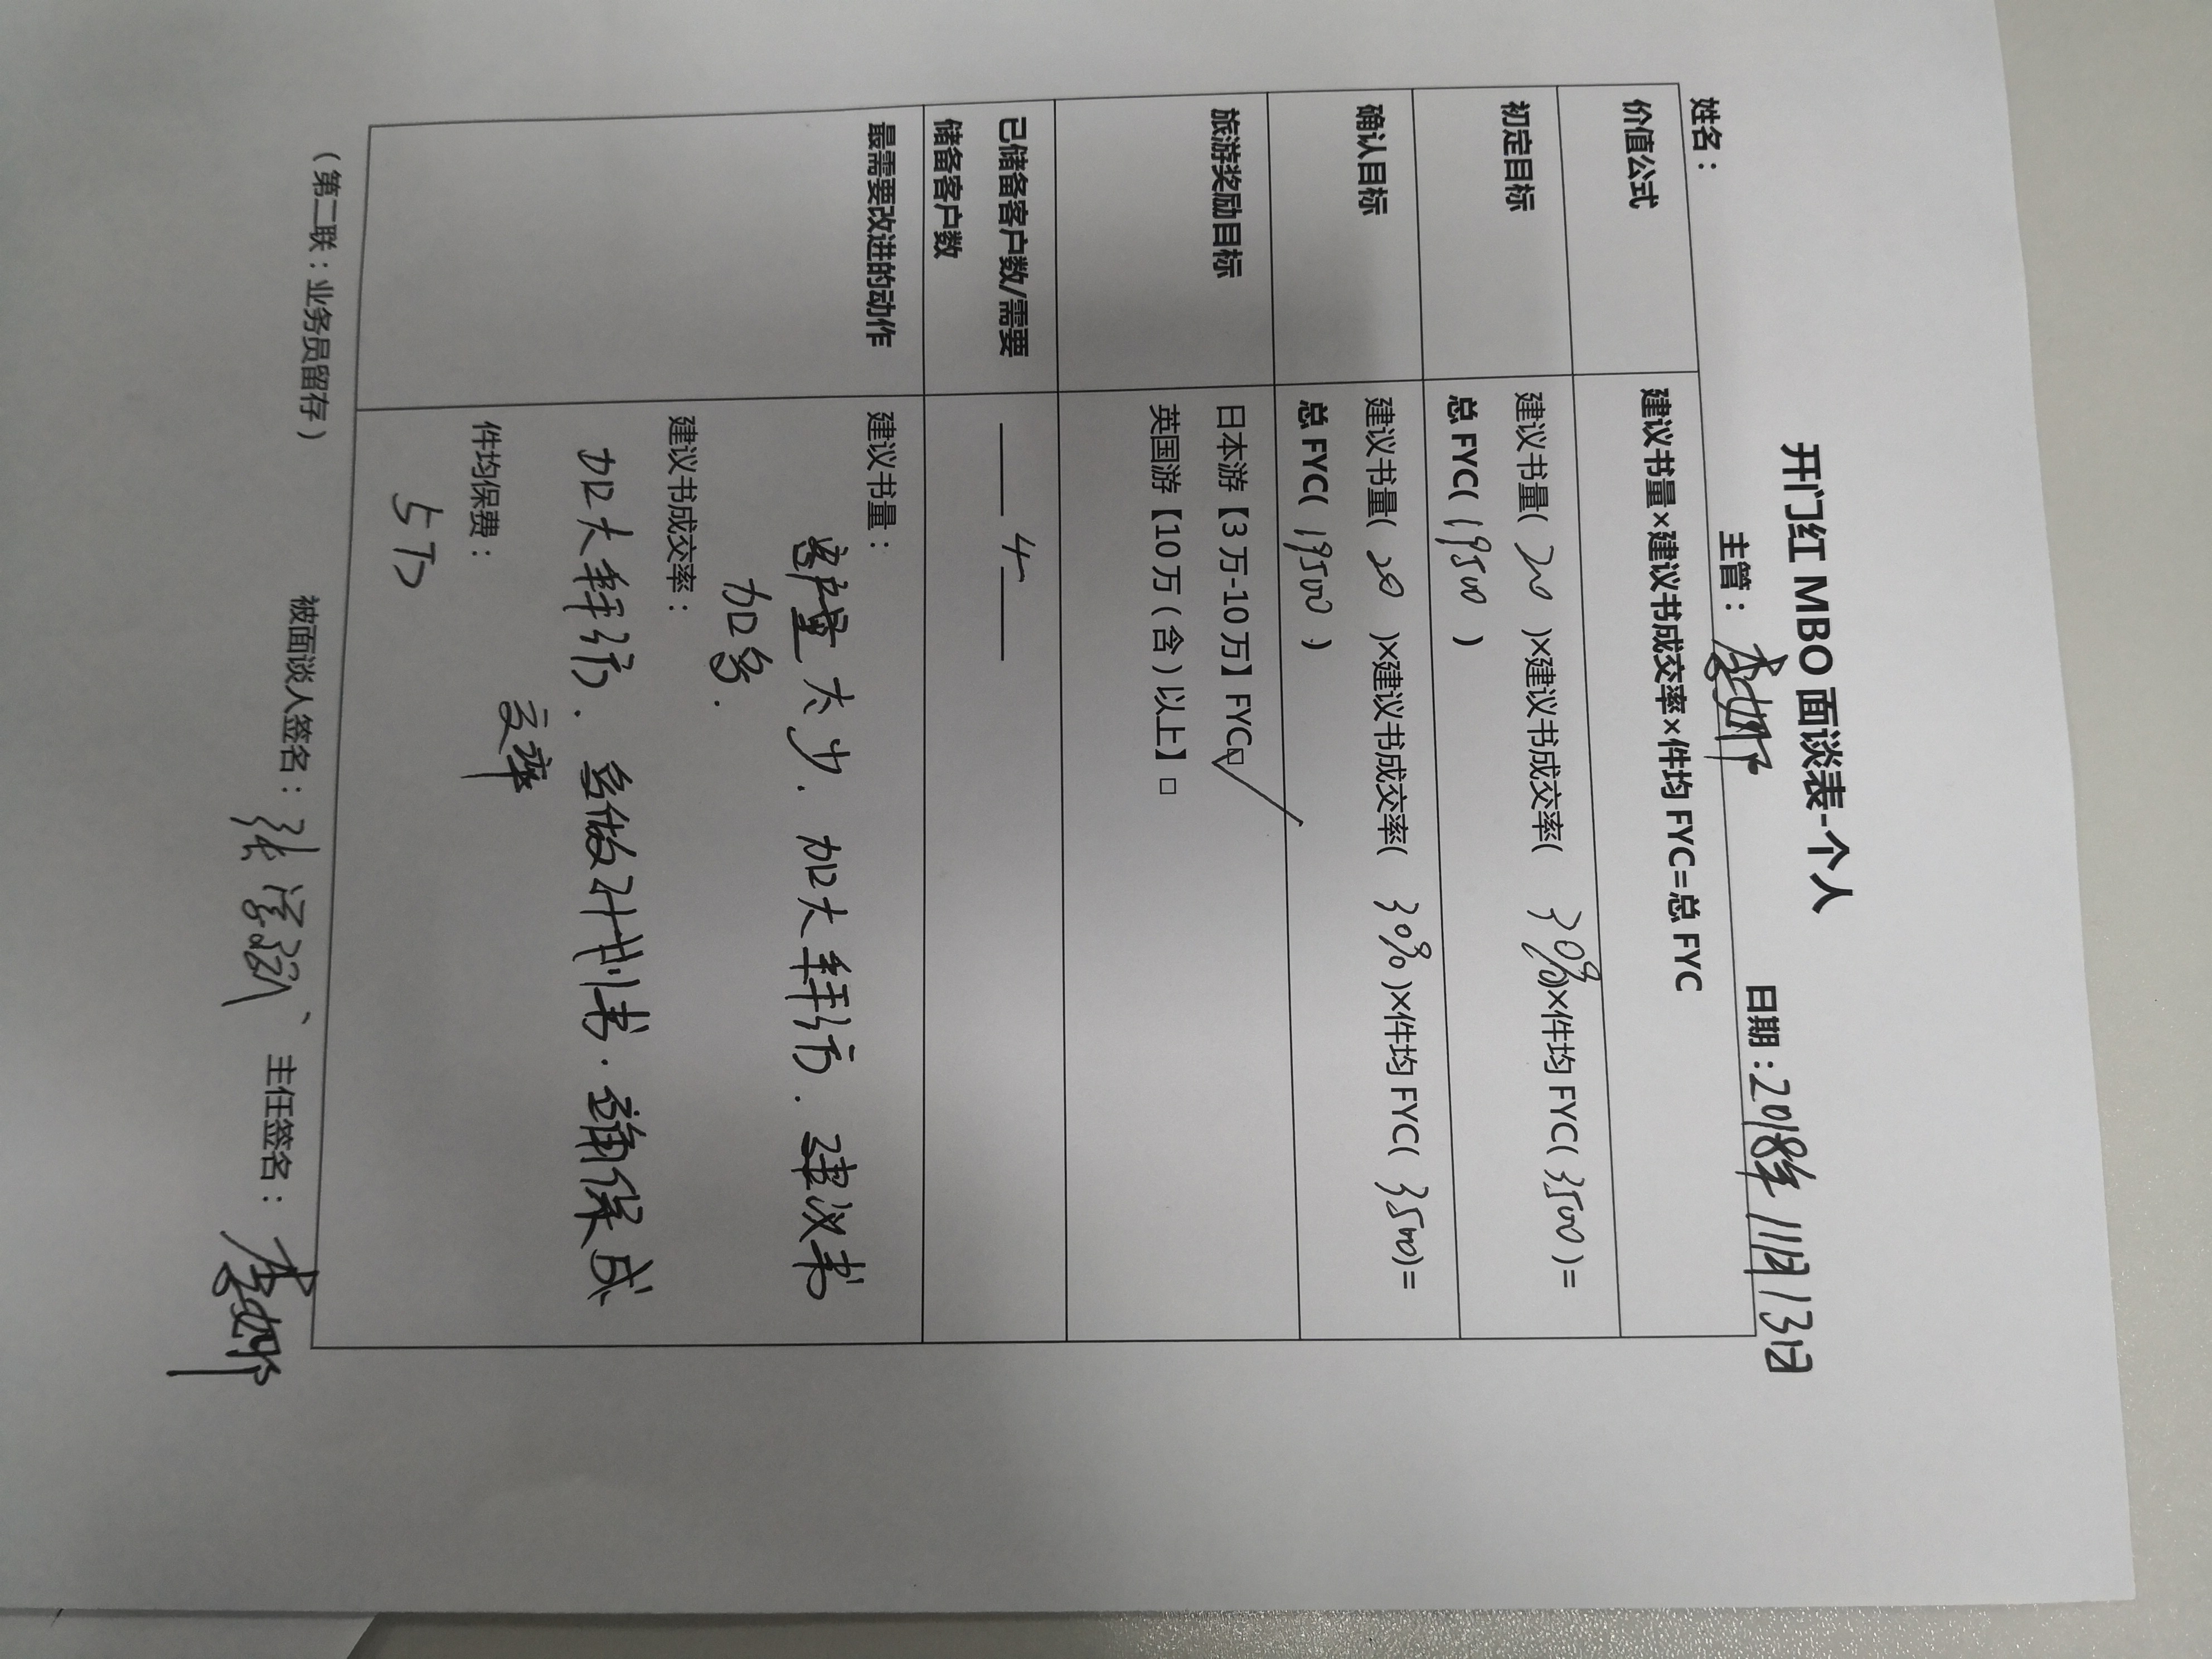 开门红 MBO 面谈表-个人
姓名： 主管： 日期：2018年11月13日
价值公式 建议书量×建议书成交率×件均 FYC=总 FYC
初定目标 建议书量( 20 )×建议书成交率( 30% )×件均 FYC( 3500 )=
总 FYC( 19500 )
确认目标 建议书量( 20 )×建议书成交率( 30% )×件均 FYC( 3500 )=
总 FYC( 19500 )
旅游奖励目标 日本游【3 万-10 万】FYC□✓
英国游【10 万（含）以上】□
已储备客户数/需要
储备客户数 4
最需要改进的动作 建议书量：
客户量太少．加大拜访．建议书
加多．
建议书成交率：
加大拜访．多做计划书．确保成
交率
件均保费：
5万
（第二联：业务员留存） 被面谈人签名：张 、 主任签名：